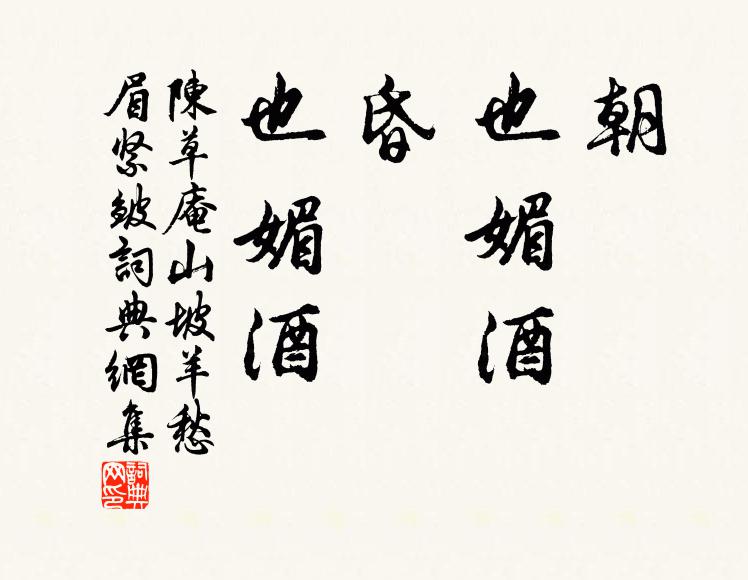 朝
也媚酒
昏
也媚酒
陳草庵山坡羊愁
眉緊皺詞典網集
詞典
网印